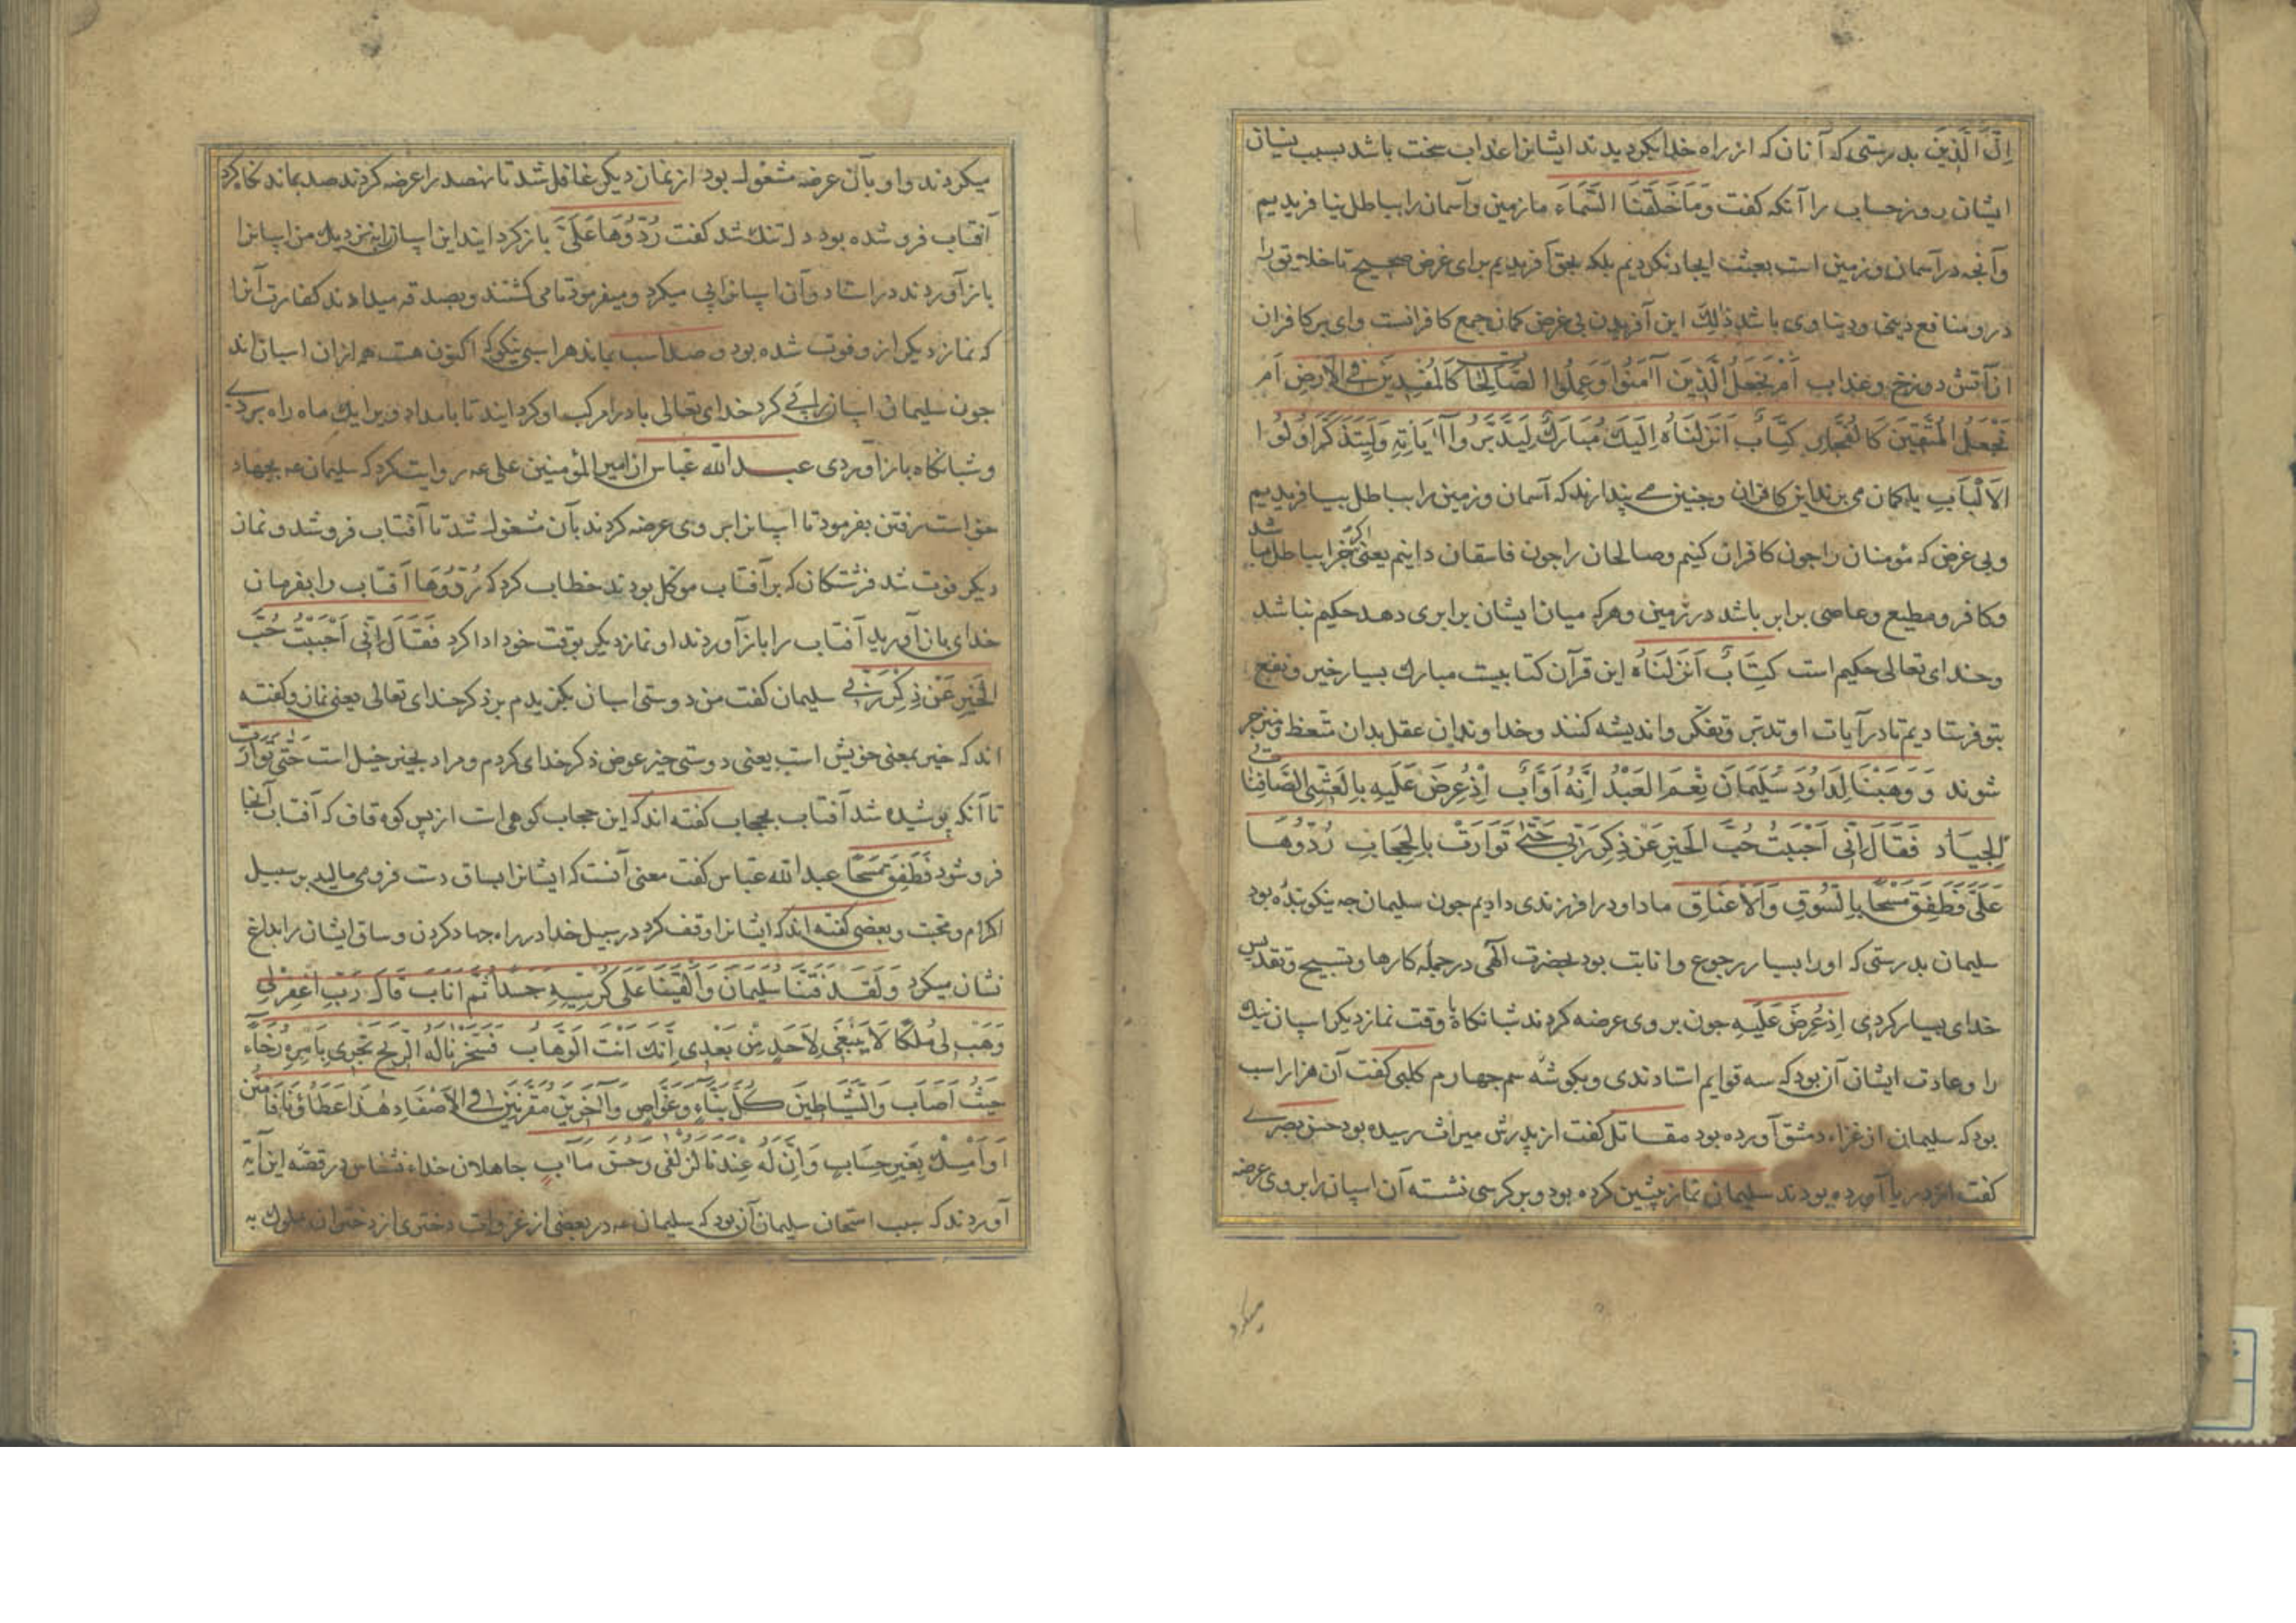 اِنَّ الَّذینَ بدرستی که آنان که از راه خدا بگردیدند ایشانرا عذاب سخت باشد بسبب نسیان
ایشان روز حساب را آنکه گفت وَمَا خَلَقنَا السَّمَاءَ ما زمین و آسمان را بباطل نیافریدیم
وآنچه در آسمان و زمین است بعبث ایجاد نکردیم بلکه بحق آفریدیم برای غرض صحیح تا خلایق را
در و منافع دینی و دنیاوی باشد ذٰلِكَ این آفریدن بی غرض کمان جمع کافرانست وای بر کافران
از آتش دوزخ و عذاب اَمْ نَجعَلُ الَّذینَ آمَنُوا وَعَمِلُوا الصَّالِحَاتِ کَالمُفسِدینَ فِی الاَرضِ اَم
نَجعَلُ المُتَّقینَ کَالفُجَّارِ کِتَابٌ اَنزَلنَاهُ اِلَیكَ مُبَارَكٌ لِیَدَّبَّرُوا آیَاتِهِ وَلِیَتَذَکَّرَ اُولُوا
الاَلبَابِ یا کمان می برند این کافران و چنین می پندارند که آسمان و زمین را بباطل بیافریدیم
وبی غرض که مؤمنان را جون کافران کنیم وصالحان را جون فاسقان دانیم یعنی اگر جزا بباطل باشد
وکافر و مطیع و عاصی برابر باشد در زمین وهرکه میان ایشان برابری دهد حکیم نباشد
وخدای تعالی حکیم است کِتَابٌ اَنزَلنَاهُ این قرآن کتابیست مبارك بسیار خیر و نفع
بتو فرستادیم تا در آیات او تدبر و تفکر و اندیشه کنند وخداوندان عقل بدان متعظ و منزجر
شوند وَوَهَبنَا لِدَاوُدَ سُلَیمَانَ نِعمَ العَبدُ اِنَّهُ اَوَّابٌ اِذ عُرِضَ عَلَیهِ بِالعَشِیِّ الصَّافِنَاتُ
الجِیَاد فَقَالَ اِنِّی اَحبَبتُ حُبَّ الخَیرِ عَن ذِکرِ رَبِّی حَتّٰی تَوَارَت بِالحِجَابِ رُدُّوهَا
عَلَیَّ فَطَفِقَ مَسحًا بِالسُّوقِ وَالاَعنَاقِ ما داود را فرزندی دادیم جون سلیمان جه نیکو بنده بود
سلیمان بدرستی که او را بسیار رجوع و انابت بود بحضرت الهی در جمله کارها و تسبیح و تقدیس
خدای بسیار کردی اِذ عُرِضَ عَلَیهِ جون بر وی عرضه کردند شبانگاه با وقت نماز دیگر اسپان نیك
را و عادت ایشان آن بود که سه قوایم استادندی و بگوشه سم جهارم کلبی گفت آن هزار اسب
بود که سلیمان از غزاء دمشق آورده بود مقاتل گفت از پدرش میراث رسیده بود حسن بصری
گفت از دریا آورده بودند سلیمان نماز پشین کرده بود و بر کرسی نشسته آن اسپان را بر وی عرضه
میکرد
میکردند واو بآن عرضه مشغول بود از نماز دیگر غافل شد تا نهصد را عرضه کردند صد بماند نکاه کرد
آفتاب فرو شده بود دلتنك شد گفت رُدُّوهَا عَلَیَّ بازگردانید این اسپان را بنزدیك من اسپانرا
بازآوردند در استاد وآن اسپانرا پی میکرد ومیفرمود تا می کشتند و بصدقه میدادند کفارت آنرا
که نماز دیگر از و فوت شده بود و صد اسب بماند هر اسبی نیکو که اکنون هست هم از ان اسپان اند
جون سلیمان اسپانرا پی کرد خدای تعالی باد را مرکب او گردانید تا بامداد ویرا یك ماه راه بردی
وشبانکاه بازآوردی عبدالله عباس از امیر المؤمنین علی عه روایت کرد که سلیمان عه بجهاد
خواست رفتن بفرمود تا اسپانرا بر وی عرضه کردند بآن مشغول شد تا آفتاب فرو شد و نماز
دیگر فوت شد فرشتکان که بر آفتاب موکل بودند خطاب کرد که رُدُّوهَا آفتاب را بفرمان
خدای باز آورید آفتاب را بازآوردند او نماز دیگر بوقت خود ادا کرد فَقَالَ اِنِّی اَحبَبتُ حُبَّ
الخَیرِ عَن ذِکرِ رَبِّی سلیمان گفت من دوستی اسبان بگزیدم بر ذکر خدای تعالی یعنی نماز وگفته
اند که خیر بمعنی خویش است یعنی دوستی خیر عوض ذکر خدای کردم و مراد بخیر خیل است حَتّٰی تَوَارَت
تا آنکه پوشیده شد آفتاب بحجاب گفته اند که این حجاب کوهی است از پس کوه قاف که آفتاب آنجا
فرو شود فَطَفِقَ مَسحًا عبدالله عباس گفت معنی آنست که ایشانرا بساق دست فرو می مالید بر سبیل
اکرام و محبت و بعضی گفته اند که ایشانرا وقف کرد در سبیل خدا در راه جهاد کردن وساق ایشان را بداغ
نشان میکرد وَلَقَد فَتَنَّا سُلَیمَانَ وَاَلقَینَا عَلٰی کُرسِیِّهِ جَسَدًا ثُمَّ اَنَابَ قَالَ رَبِّ اغفِر لِی
وَهَب لِی مُلکًا لَا یَنبَغِی لِاَحَدٍ مِن بَعدِی اِنَّكَ اَنتَ الوَهَّابُ فَسَخَّرنَا لَهُ الرِّیحَ تَجرِی بِاَمرِهِ رُخَاءً
حَیثُ اَصَابَ وَالشَّیَاطِینَ کُلَّ بَنَّاءٍ وَغَوَّاصٍ وَآخَرِینَ مُقَرَّنِینَ فِی الاَصفَادِ هٰذَا عَطَاؤُنَا فَامنُن
اَو اَمسِك بِغَیرِ حِسَابٍ وَاِنَّ لَهُ عِندَنَا لَزُلفٰی وَحُسنَ مَآبٍ جاهلان خداء نشناس در قصه این آیه
آوردند که سبب امتحان سلیمان آن بود که سلیمان عه در بعضی از غزوات دختری از دختران ملوك به